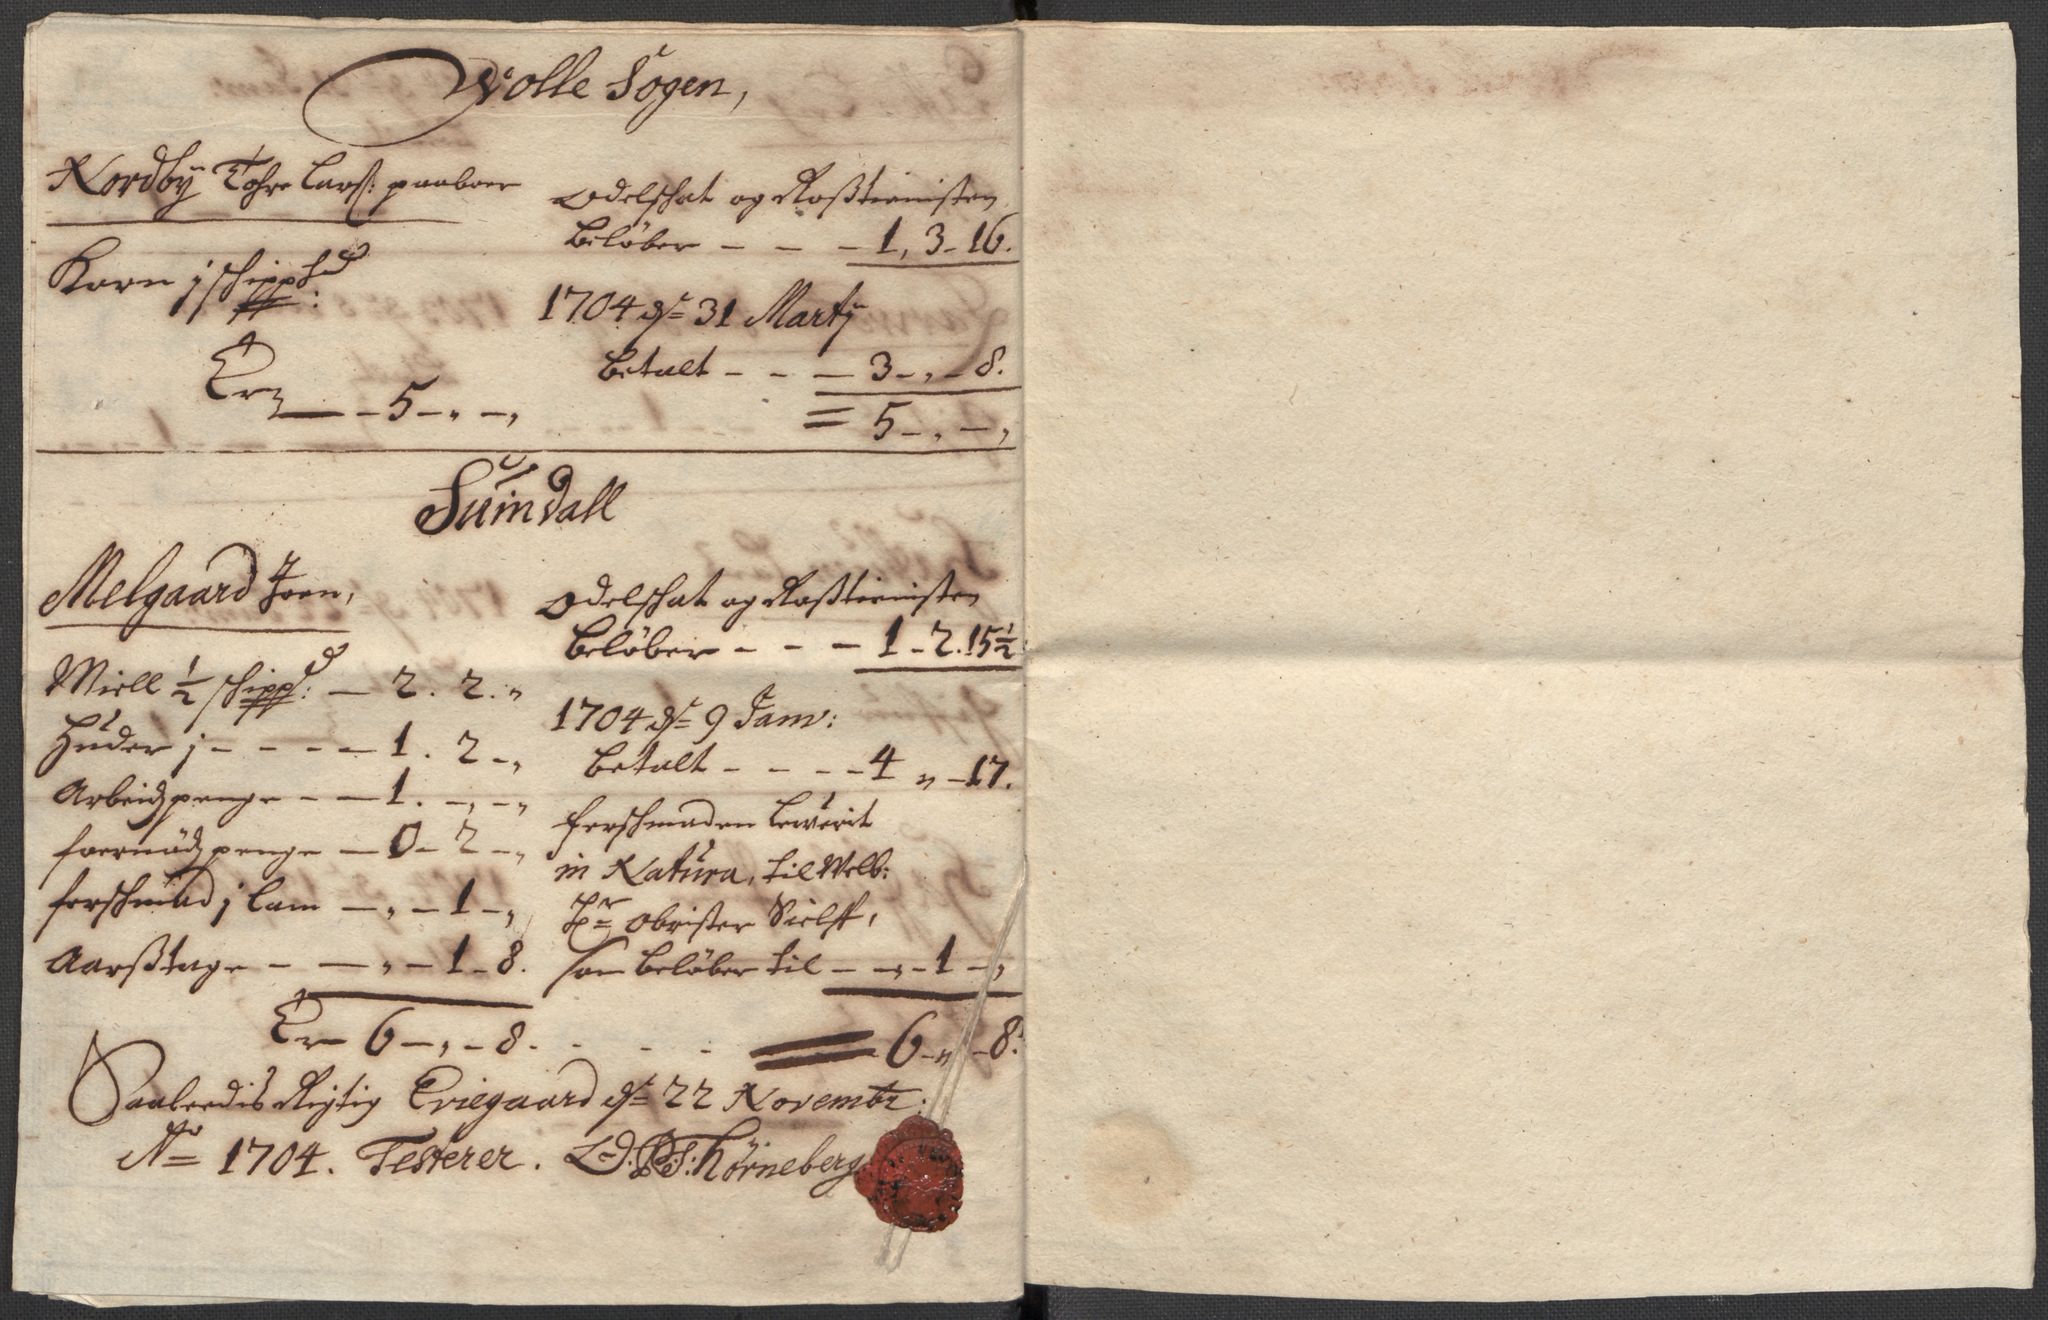 Wolle Sogen,
Nordby Tohre Larß: paaboer
Korn j schippd:
Er — 5 - „ - „
Odelschat og Roßtienisten
Beløber - - - 1, 3 - 16.
1704 dn 31 Martij
Betalt - - - 3 - „ - 8.
= 5 - „ - „
Suindall
Melgaard Joen,
Miell ½ schippd: - 2 . 2 . „
Huder j - - - - 1 . 2 - „
Arbeidzpenge - - 1 . - „ - „
foernødzpenge - 0 - 2 - „
ferschmad j Lam - „ - 1 - „
Aarßtage - - - „ - 1 - 8.
Er 6 - „ - 8.
Odelschat og Roßtienisten
Beløber - - - 1 - 2 . 15½
1704 dn 9 Janv:
Betalt - - - - 4 „ - 17.
ferschmaden Lewerit
in Natura, til Welb:
Hr Obrister Sielff,
som Beløber til - „ - 1 - „
= 6 - „ - 8.
Saaledis Rigtig Criegaard dn 22 Novembr:
Ao 1704. Testerer. L. D. P. S. Hørneberg